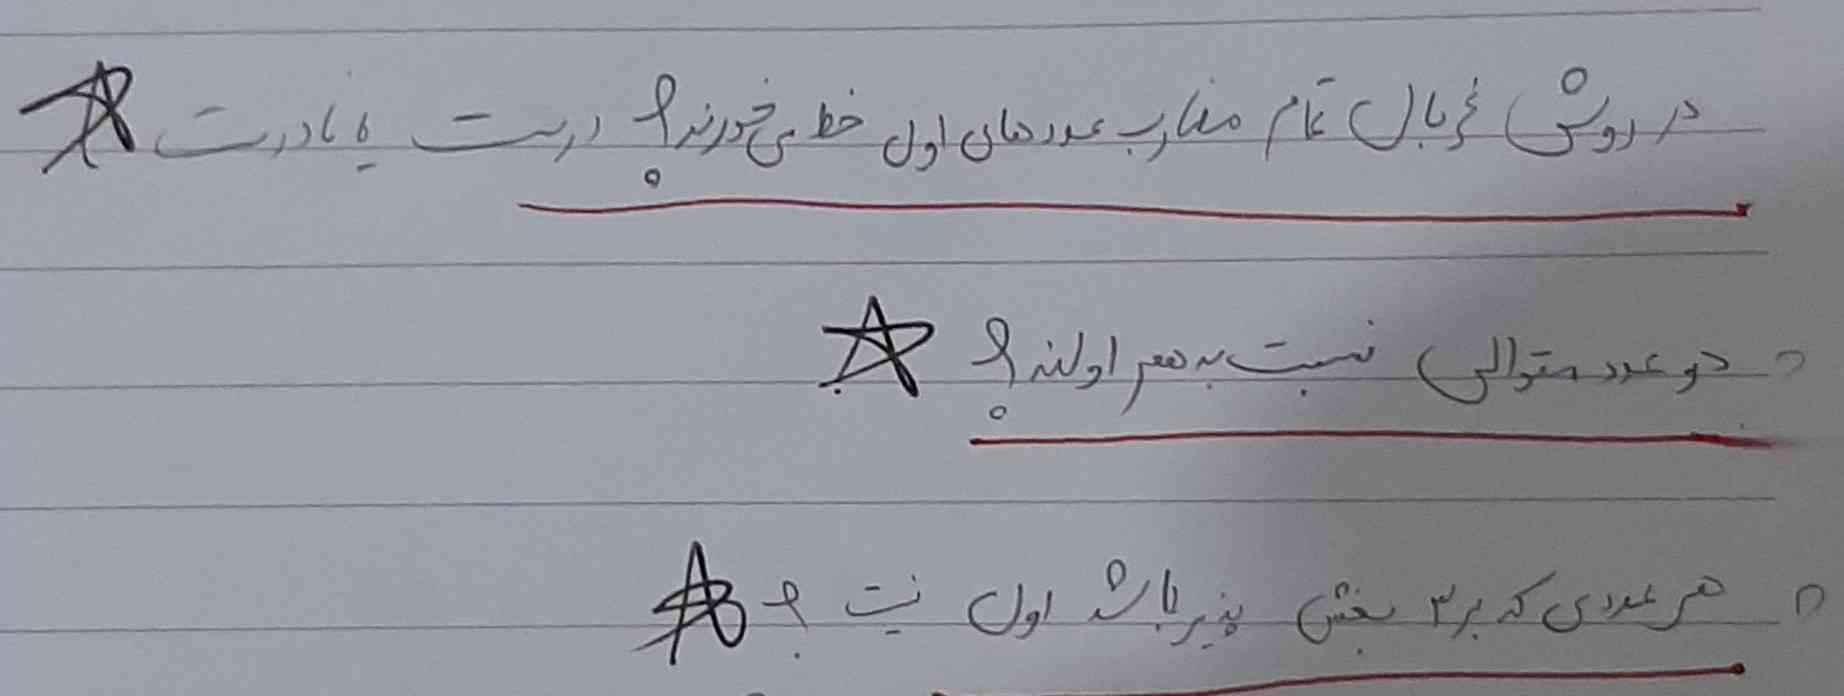 در روش غربال تمام مضارب عددهای اول خط می خورند؟ درست یا نادرست
دو عدد متوالی نسبت به هم اولند؟
هر عددی که بر ۳ بخش پذیر باشد اول نیست؟